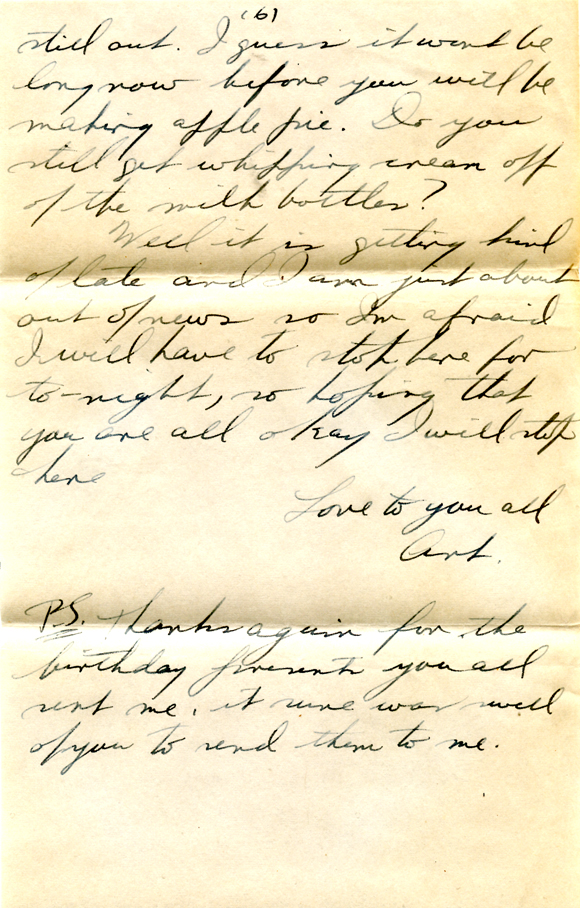 (6)
still out. I guess it wont be
long now before you will be
making apple pie. Do you
still get whipping cream off
of the milk bottles?
Well it is getting kind
of late and I am just about
out of news so Im afraid
I will have to stop here for
to-night, so hoping that
you are all okay I will stop
here
Love to you all
Art.
P.S. Thanks again for the
birthday presents you all
sent me, it sure was swell
of you to send them to me.